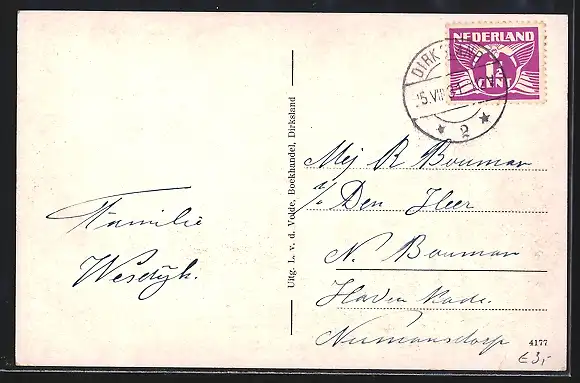 NEDERLAND
1½
CENT
DIRKSLAND
5.VIII.3
2
Mej R Bouman
Den Heer
N. Bouman
Haven Kade.
Numansdorp
Familie
Wesdijk.
Uitg. L. v. d. Velde, Boekhandel, Dirksland
4177
€3,-